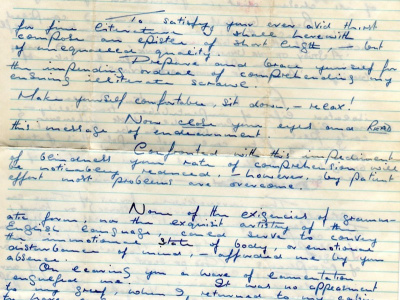 To satisfy your ever avid thirst
for fine literature, I shall herewith
compose epistle of short length, – but
of unequalled quality.
Prepare and brace yourself for
the impending ordeal of comprehending my
ensuing illiterate scrawl.
Make yourself comfortable, sit down, – relax!
Now close your eyes and READ
this message of endearment.
Confronted with this impediment
of blindness your rate of comprehension would
be noticeably reduced. However, by patient
effort most problems are overcome.
None of the exigencies of gramm-
ate form, nor the exquisit artistry of the
English language, could serve to convey
the emotional state of body, or emotional
disturbance of mind, – afforded me by your
absence.
On leaving you a wave of lamentation
engulfed me. It was no appeasment
to my grief, when I returned to